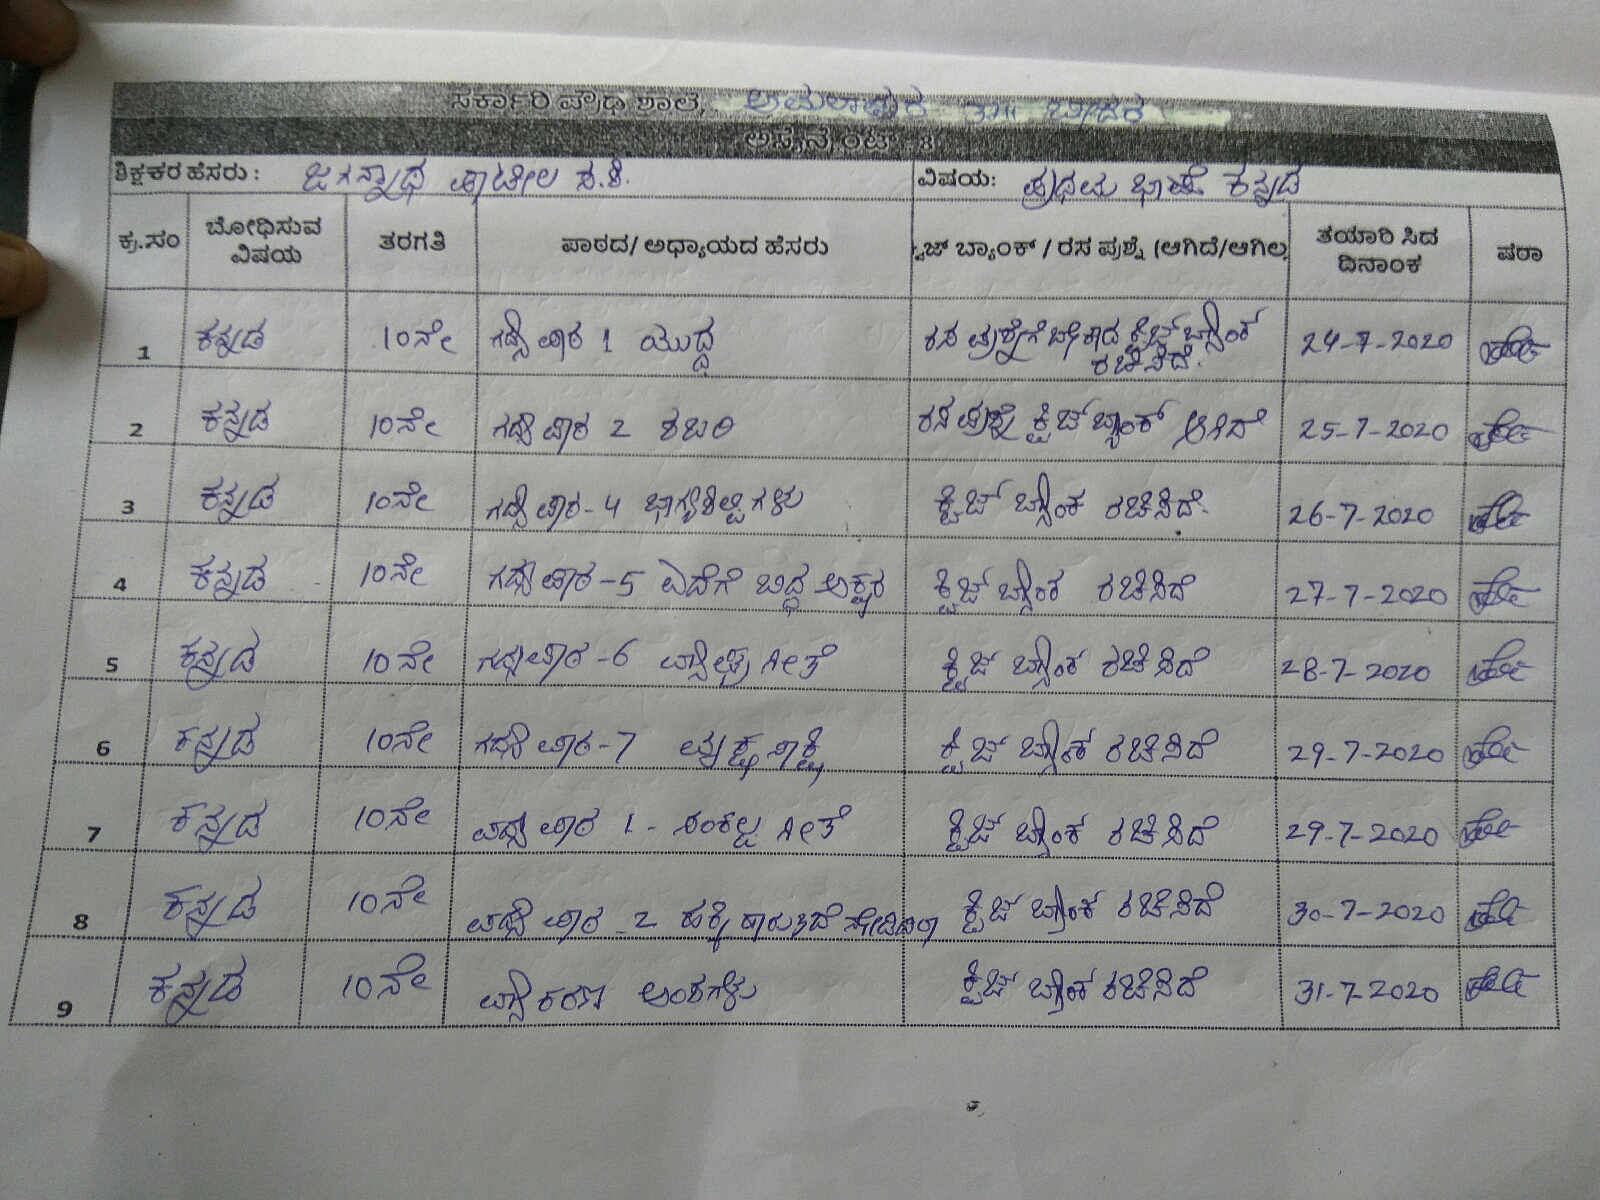 ಸರ್ಕಾರಿ ಪ್ರೌಢ ಶಾಲೆ, ಅಮಲಾಪುರ ತಾ॥ ಬೀದರ
ಅಸೈನ್ಮೆಂಟ್ - 3
ಶಿಕ್ಷಕರ ಹೆಸರು : ಜಗನ್ನಾಥ ಪಾಟೀಲ ಸ.ಶಿ. ವಿಷಯ: ಪ್ರಥಮ ಭಾಷೆ ಕನ್ನಡ
ಕ್ರ.ಸಂ ಬೋಧಿಸುವ ವಿಷಯ ತರಗತಿ ಪಾಠದ/ ಅಧ್ಯಾಯದ ಹೆಸರು ಕ್ವಿಜ್ ಬ್ಯಾಂಕ್ / ರಸ ಪ್ರಶ್ನೆ (ಆಗಿದೆ/ಆಗಿಲ್ಲ ತಯಾರಿ ಸಿದ ದಿನಾಂಕ ಷರಾ
1 ಕನ್ನಡ 10ನೇ ಗದ್ಯ ಪಾಠ 1 ಯುದ್ಧ ರಸ ಪ್ರಶ್ನೆಗೆ ಬೇಕಾದ ಕ್ವಿಜ್ ಬ್ಯಾಂಕ ರಚಿಸಿದೆ. 24-7-2020
2 ಕನ್ನಡ 10ನೇ ಗದ್ಯ ಪಾಠ 2 ಶಬರಿ ರಸ ಪ್ರಶ್ನೆ ಕ್ವಿಜ್ ಬ್ಯಾಂಕ್ ಆಗಿದೆ 25-7-2020
3 ಕನ್ನಡ 10ನೇ ಗದ್ಯ ಪಾಠ-4 ಭಾಗ್ಯಶಿಲ್ಪಿಗಳು ಕ್ವಿಜ್ ಬ್ಯಾಂಕ ರಚಿಸಿದೆ. 26-7-2020
4 ಕನ್ನಡ 10ನೇ ಗದ್ಯ ಪಾಠ-5 ಎದೆಗೆ ಬಿದ್ದ ಅಕ್ಷರ ಕ್ವಿಜ್ ಬ್ಯಾಂಕ ರಚಿಸಿದೆ 27-7-2020
5 ಕನ್ನಡ 10ನೇ ಗದ್ಯ ಪಾಠ-6 ವ್ಯಾಘ್ರ ಗೀತೆ ಕ್ವಿಜ್ ಬ್ಯಾಂಕ ರಚಿಸಿದೆ 28-7-2020
6 ಕನ್ನಡ 10ನೇ ಗದ್ಯ ಪಾಠ-7 ವೃಕ್ಷ ಸಾಕ್ಷಿ ಕ್ವಿಜ್ ಬ್ಯಾಂಕ ರಚಿಸಿದೆ 29-7-2020
7 ಕನ್ನಡ 10ನೇ ಪದ್ಯ ಪಾಠ 1 - ಸಂಕಲ್ಪ ಗೀತೆ ಕ್ವಿಜ್ ಬ್ಯಾಂಕ ರಚಿಸಿದೆ 29-7-2020
8 ಕನ್ನಡ 10ನೇ ಪದ್ಯ ಪಾಠ - 2 ಹಕ್ಕಿ ಹಾರುತಿದೆ ನೋಡಿದಿರಾ ಕ್ವಿಜ್ ಬ್ಯಾಂಕ ರಚಿಸಿದೆ 30-7-2020
9 ಕನ್ನಡ 10ನೇ ವ್ಯಾಕರಣ ಅಂಶಗಳು ಕ್ವಿಜ್ ಬ್ಯಾಂಕ ರಚಿಸಿದೆ 31-7-2020